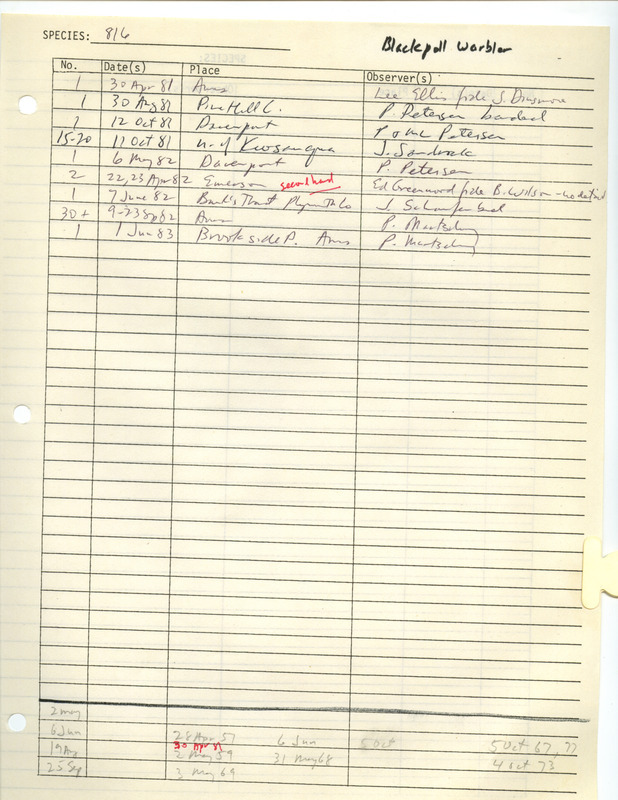 SPECIES: 816
Blackpoll Warbler
No. Date(s) Place Observer(s)
1 30 Apr 81 Ames Lee Ellis fide J. Dinsmore
1 30 Aug 81 Pine Hill C. P. Petersen banded
1 12 Oct 81 Davenport P. Petersen
15-20 11 Oct 81 n. of Keosauqua J. Sandrock
1 6 May 82 Davenport P. Petersen
2 22,23 Apr 82 Emerson second hand Ed Greenwood fide B. Wilson - no details
1 7 June 82 Plymouth Co J. Schaufenbuel
30+ 9-23 Sep 82 Ames P. Martsching
1 1 Jun 83 Brookside P. Ames P. Martsching
2 May
6 Jun 28 Apr 57 6 Jun 5 Oct 5 Oct 67, 77
30 Apr 81
19 Aug 2 May 59 31 May 68 4 Oct 73
25 Sep 3 May 69